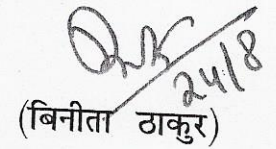 24/8
(बिनीता ठाकुर)